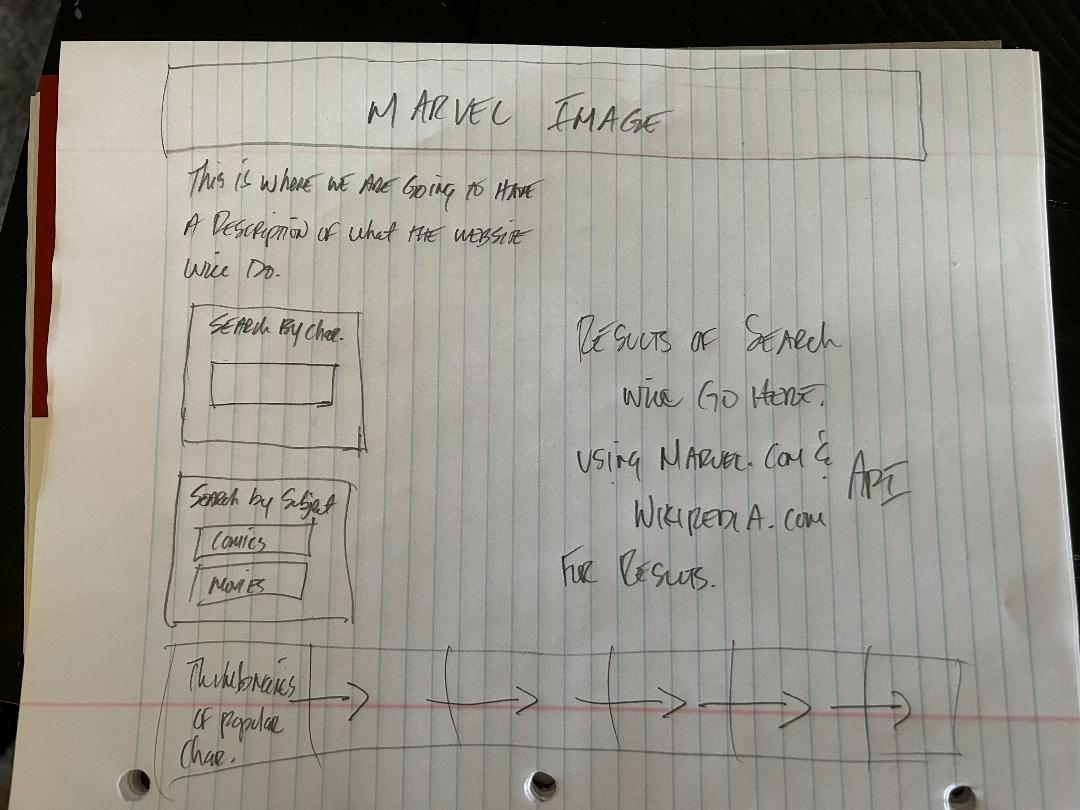 MARVEL IMAGE
This is where we are going to have
a description of what the website
will do.
Search By Char.
Search by Subject
Comics
Movies
Results of Search
will go here.
using Marvel.com &
API
Wikipedia.com
for Results.
Thumbnails
of popular
Char.